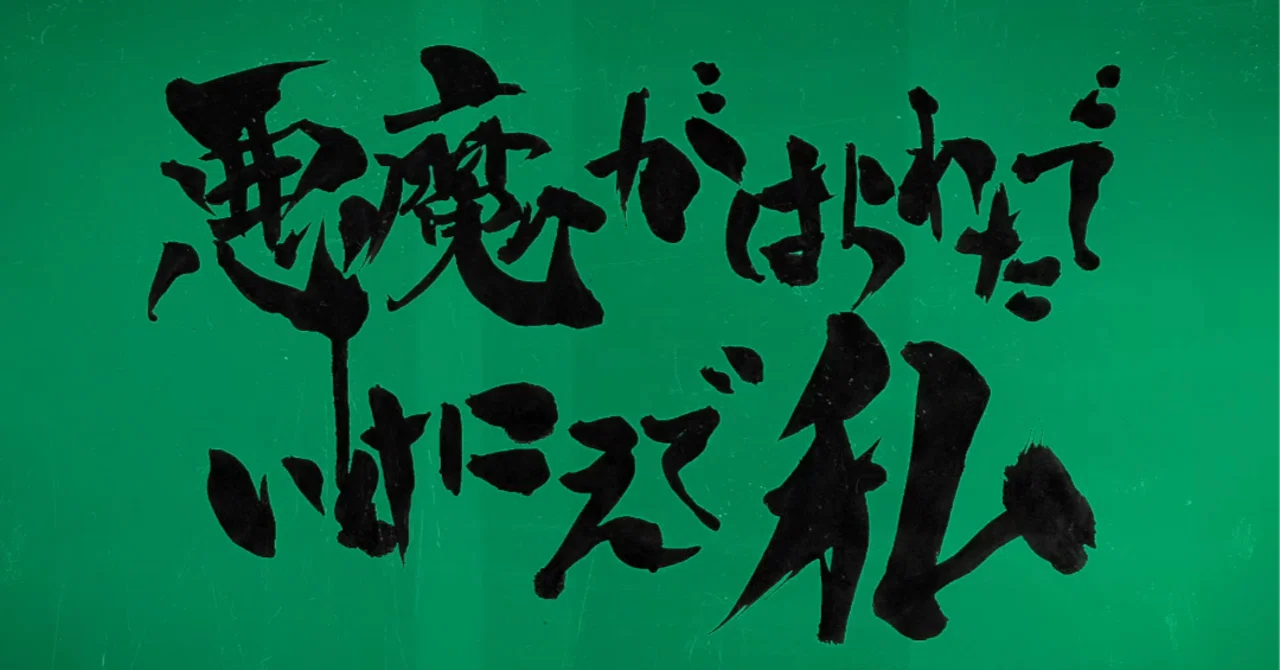 悪魔がはらわたで
いけにえで私